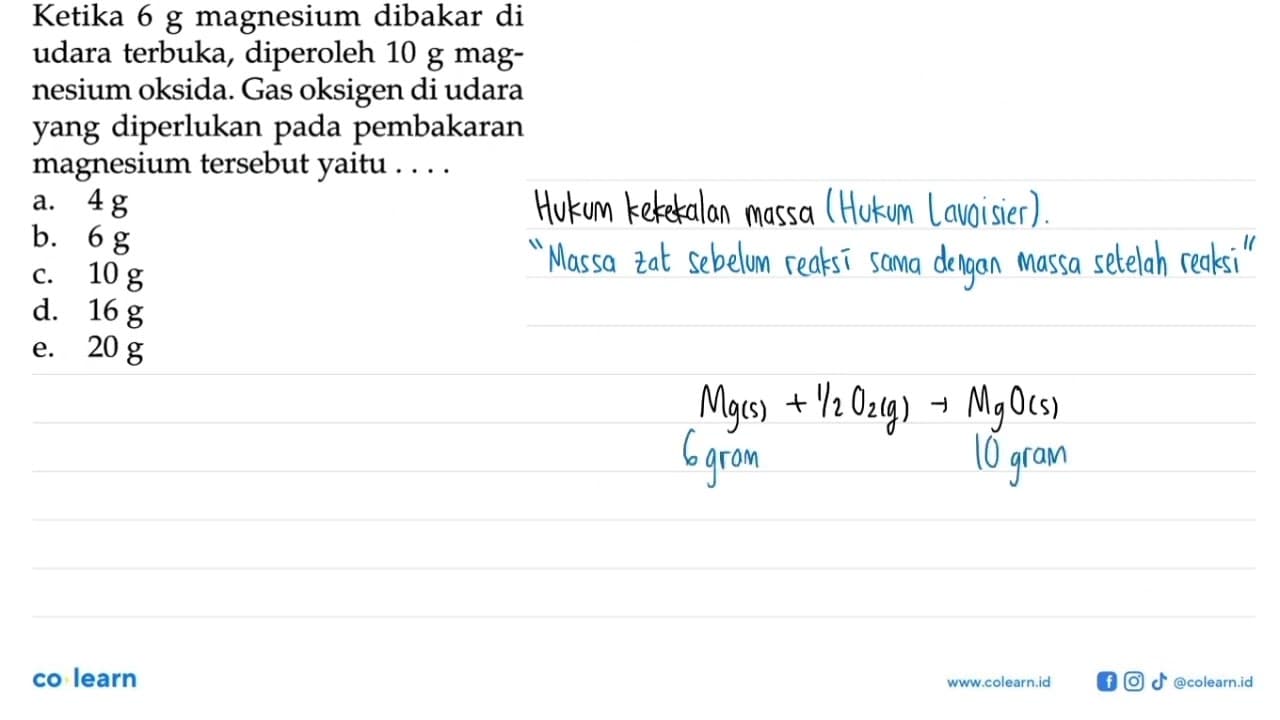 Ketika 6 g magnesium dibakar di
udara terbuka, diperoleh 10 g mag-
nesium oksida. Gas oksigen di udara
yang diperlukan pada pembakaran
magnesium tersebut yaitu . . . .
a. 4 g
b. 6 g
c. 10 g
d. 16 g
e. 20 g
Hukum kekekalan massa (Hukum Lavoisier).
"Massa zat sebelum reaksi sama dengan massa setelah reaksi"
Mg(s) + 1/2 O2(g) → MgO(s)
6 gram 10 gram
co learn
www.colearn.id @colearn.id